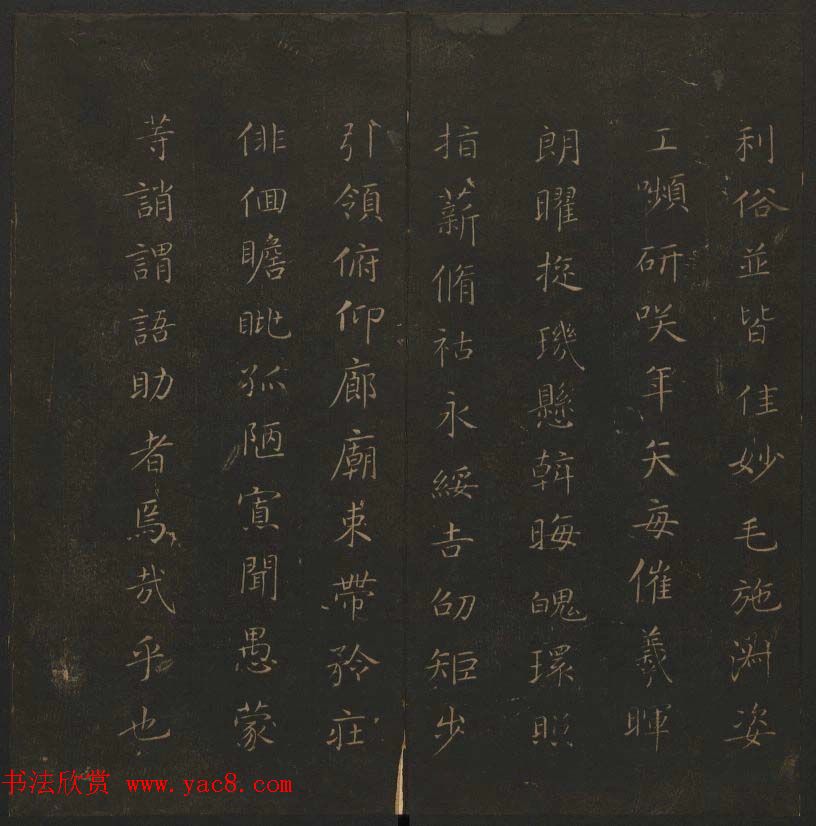 利俗並皆佳妙毛施淑姿
工嚬研咲年矢每催羲暉
朗曜㨕璣懸斡晦魄環照
指薪脩祜永綏吉劭矩步
引領俯仰廊廟束帶矜莊
俳佪瞻眺孤陋寡聞愚蒙
等誚謂語助者焉哉乎也
书法欣赏 www.yac8.com